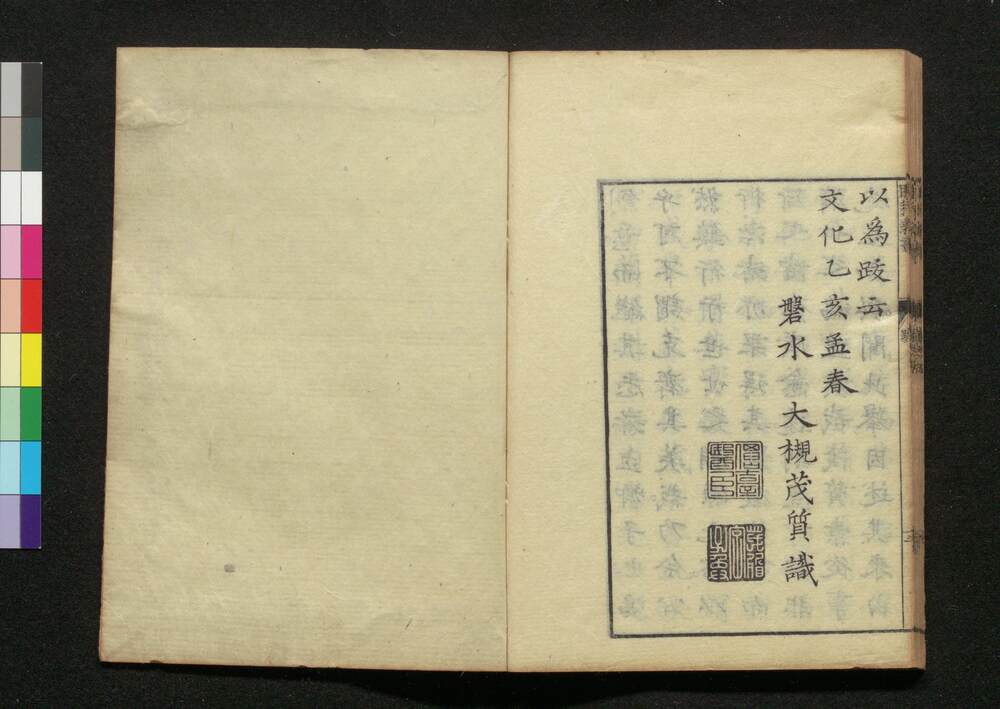 以為跋云
文化乙亥孟春
磐水 大槻茂質識
僊臺醫臣